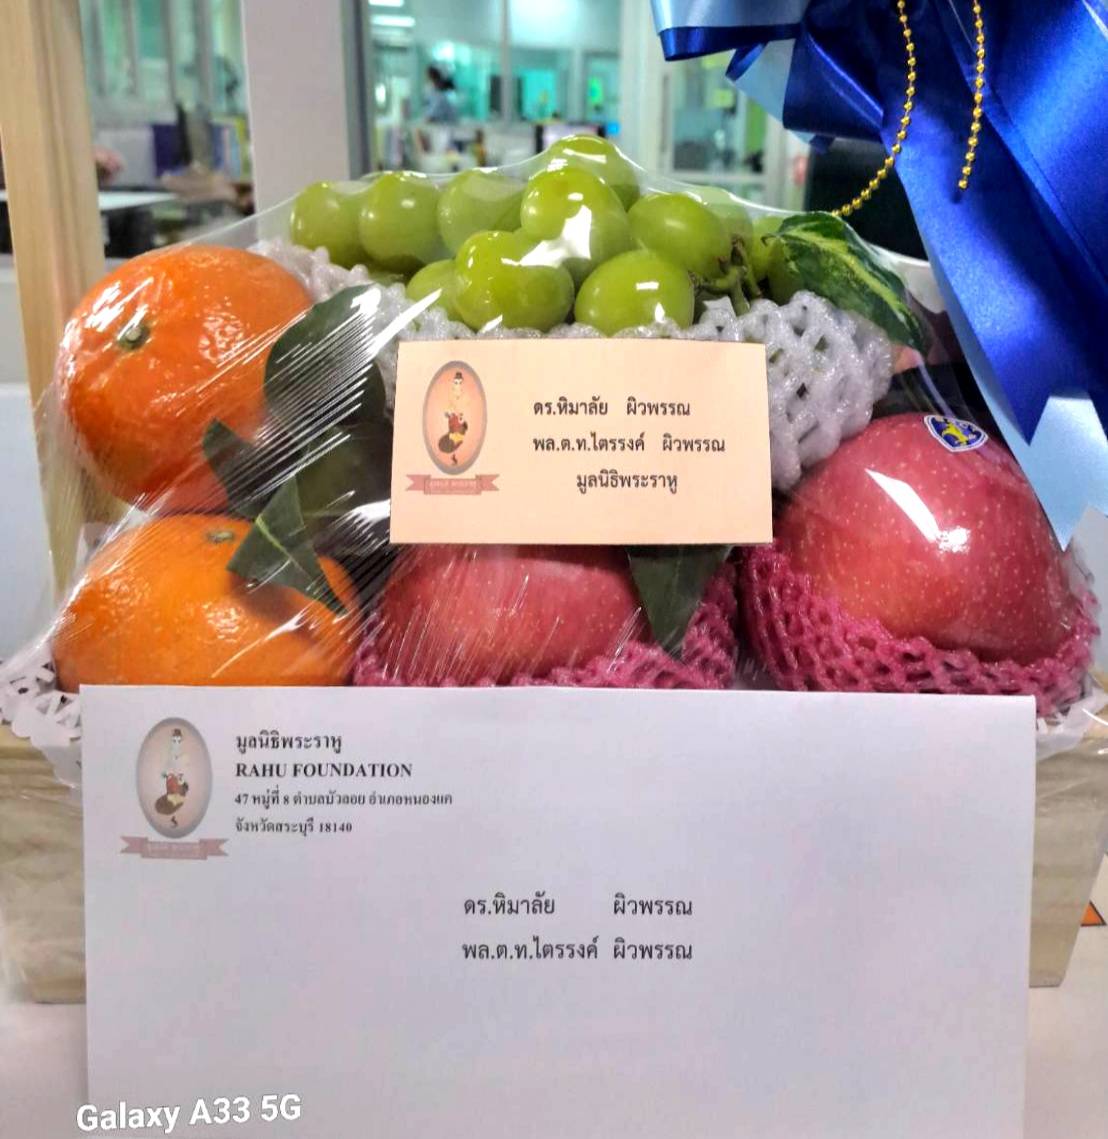 ดร.หิมาลัย ผิวพรรณ
พล.ต.ท.ไตรรงค์ ผิวพรรณ
มูลนิธิพระราหู
มูลนิธิพระราหู
RAHU FOUNDATION
47 หมู่ที่ 8 ตำบลบัวลอย อำเภอหนองแค
จังหวัดสระบุรี 18140
ดร.หิมาลัย ผิวพรรณ
พล.ต.ท.ไตรรงค์ ผิวพรรณ
Galaxy A33 5G